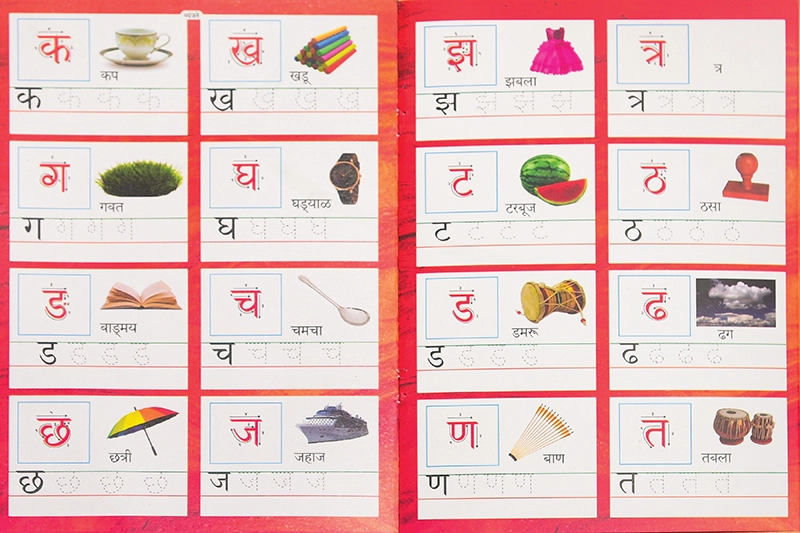 व्यंजने
क
कप
क क क क
ख
खडू
ख ख ख ख
ग
गवत
ग ग ग ग
घ
घड्याळ
घ घ घ घ
ङ
वाङ्मय
ङ ङ ङ ङ
च
चमचा
च च च च
छ
छत्री
छ छ छ छ
ज
जहाज
ज ज ज ज
झ
झबला
झ झ झ झ
त्र
त्र
त्र त्र त्र त्र
ट
टरबूज
ट ट ट ट
ठ
ठसा
ठ ठ ठ ठ
ड
डमरू
ड ड ड ड
ढ
ढग
ढ ढ ढ ढ
ण
बाण
ण ण ण ण
त
तबला
त त त त